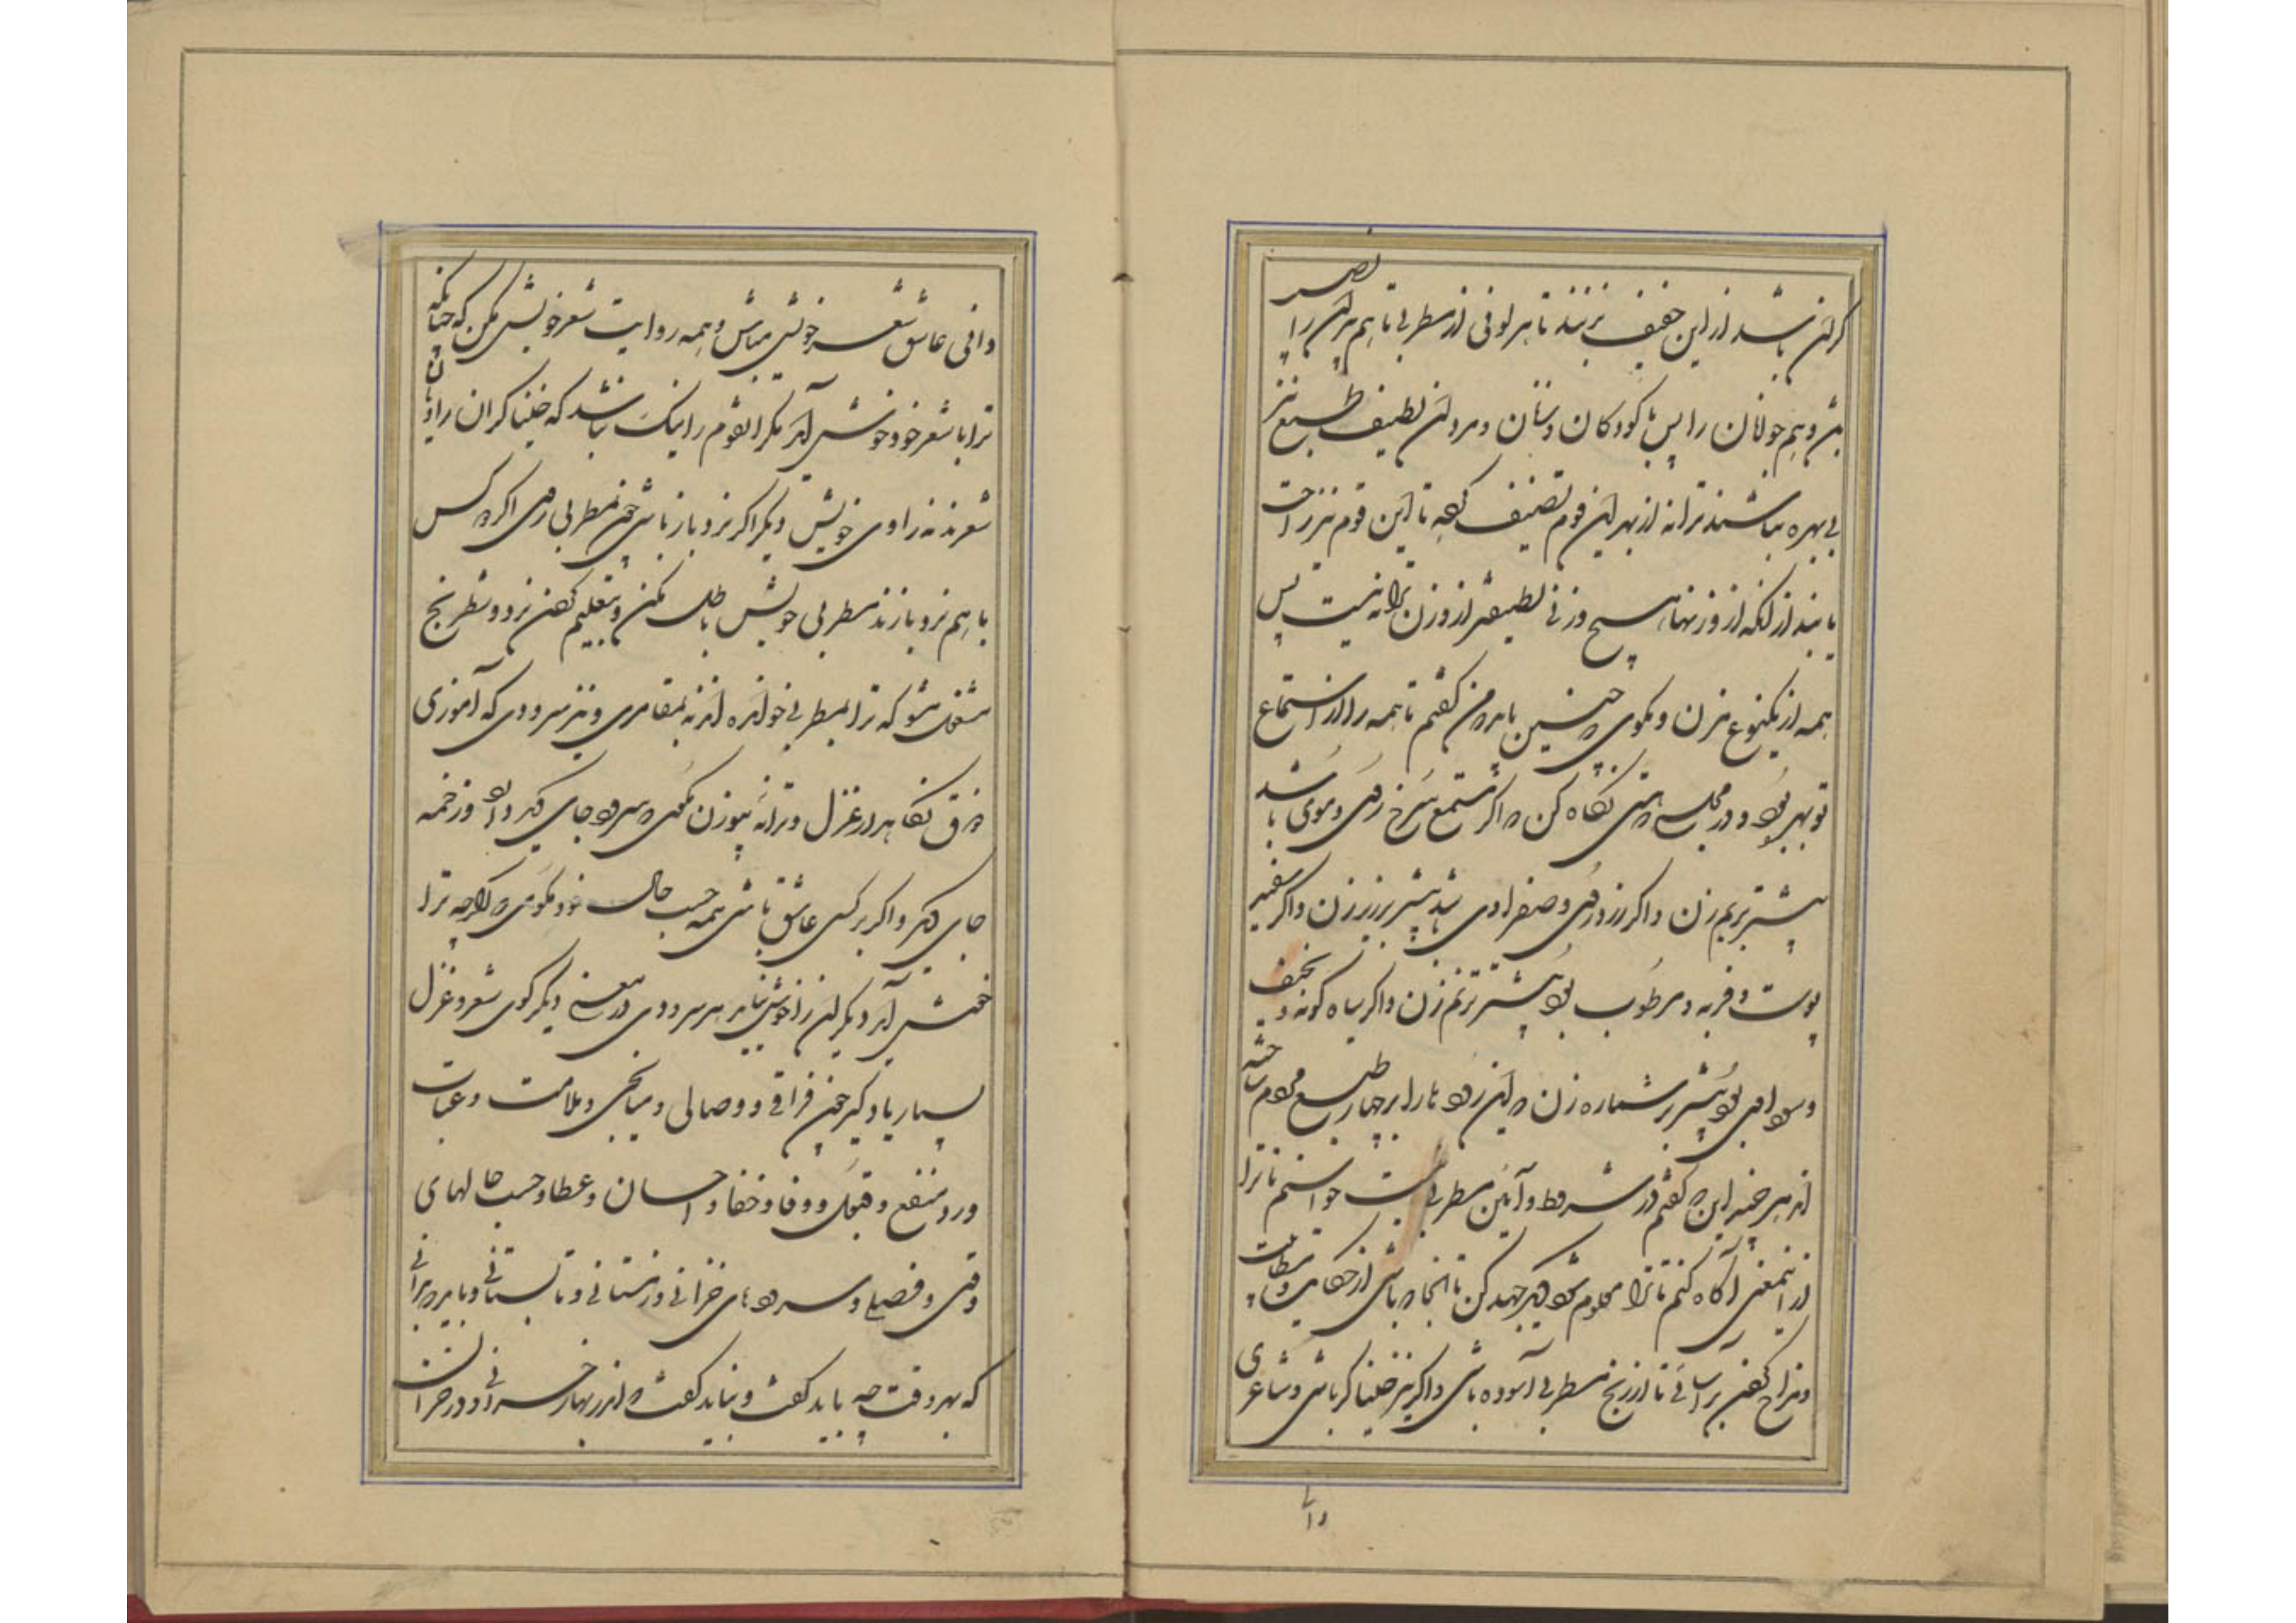 گران باشد از این خفیف بزنند تا هر نوعی از مطربی تا هم پیران را نصیب
باشد و هم جوانان را پس کودکان و زنان و مردان لطیف طبع نیز
بی بهره نباشند ترانه از بهر این قوم تصنیف کرده تا این قوم نیز راحت
یابند از آنکه از وزنها هیچ وزنی لطیفتر از وزن ترانه نیست پس
همه از یکنوع مزن و مگوی که چنین باید که من گفتم تا همه را از استماع
تو بهره بود و در مجلسی که بنشینی نگاه کن که اگر مستمع سرخ روی و دموی باشد
بیشتر بر بم زن و اگر زرد روی و صفراوی باشد بیشتر بر زیر زن و اگر سفید
پوست و فربه و مرطوب بود بیشتر بر بم زن و اگر سیاه گونه و نحیف
و سودایی بود بیشتر بر سه تاره زن که این رودها را بر چهار طبع مردم ساخته
اند هر چند این که گفتم در شرط و آئین مطربی نیست خواستم تا ترا
از اینمعنی آگاه کنم تا ترا معلوم شود دیگر جهد کن تا آنجا که باشی از حکایت و
مزاح کردن بر آسائی تا از رنج مطربی آسوده باشی و اگر نیز خنیاگر باشی و شاعری
دانی عاشق شعر خویش مباش و همه روایت شعر خویش مکن که چنانکه
ترا با شعر خود خوش آید مگر آنقوم را نیک نباشد که خنیاگران راویان
شعرند نه راوی خویش دیگر اگر نرد باز باشی چون بمطربی روی اگر دو کس
با هم نرد بازند مطربی خویش باطل مکن و بتعلیم کردن نرد و شطرنج
مشغول مشو که ترا بمطربی خوانده اند نه بمقامری و نیز سرودی که آموزی
ذوق نگاهدار غزل و ترانه بیوزن مگوی که سرود جای دیگر بود و زخمه
جای دیگر و اگر بر کسی عاشق باشی همه حسب حال خود مگوی که اگرچه ترا
خوش آید دیگران را خوش نیاید هر سرودی در معنی دیگر گوی شعر و غزل
بسیار یاد گیر چون فراقی و وصالی و ملامت و عتاب
و رد و منع و قبول و وفا و جفا و احسان و عطا و حسب حالهای
وقتی و فصلی و سرودهای خزانی و زمستانی و تابستانی و باید که بدانی
که بهر وقت چه باید گفت و نباید گفت که اندر بهار خزانی و در خزان